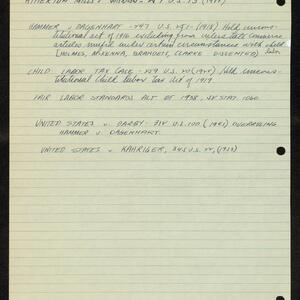 ATHERTON MILLS v.
HAMMER v. DAGENHART - 247 U.S. 251 - (1918) Held uncons-
titutional act of 1916 excluding from interstate commerce
articles mfg'd under certain circumstances with child
labor
(HOLMES, McKENNA, BRANDEIS, CLARKE DISSENTED)
CHILD LABOR TAX CASE - 259 U.S. 20 (1922) Held uncons-
titutional Child Labor tax Act of 1919
FAIR LABOR STANDARDS ACT OF 1938, 52 STAT. 1060
UNITED STATES v. DARBY - 312 U.S. 100 (1941) OVERRULING
HAMMER v. DAGENHART.
UNITED STATES v. KAHRIGER, 345 U.S. 22, (1953)